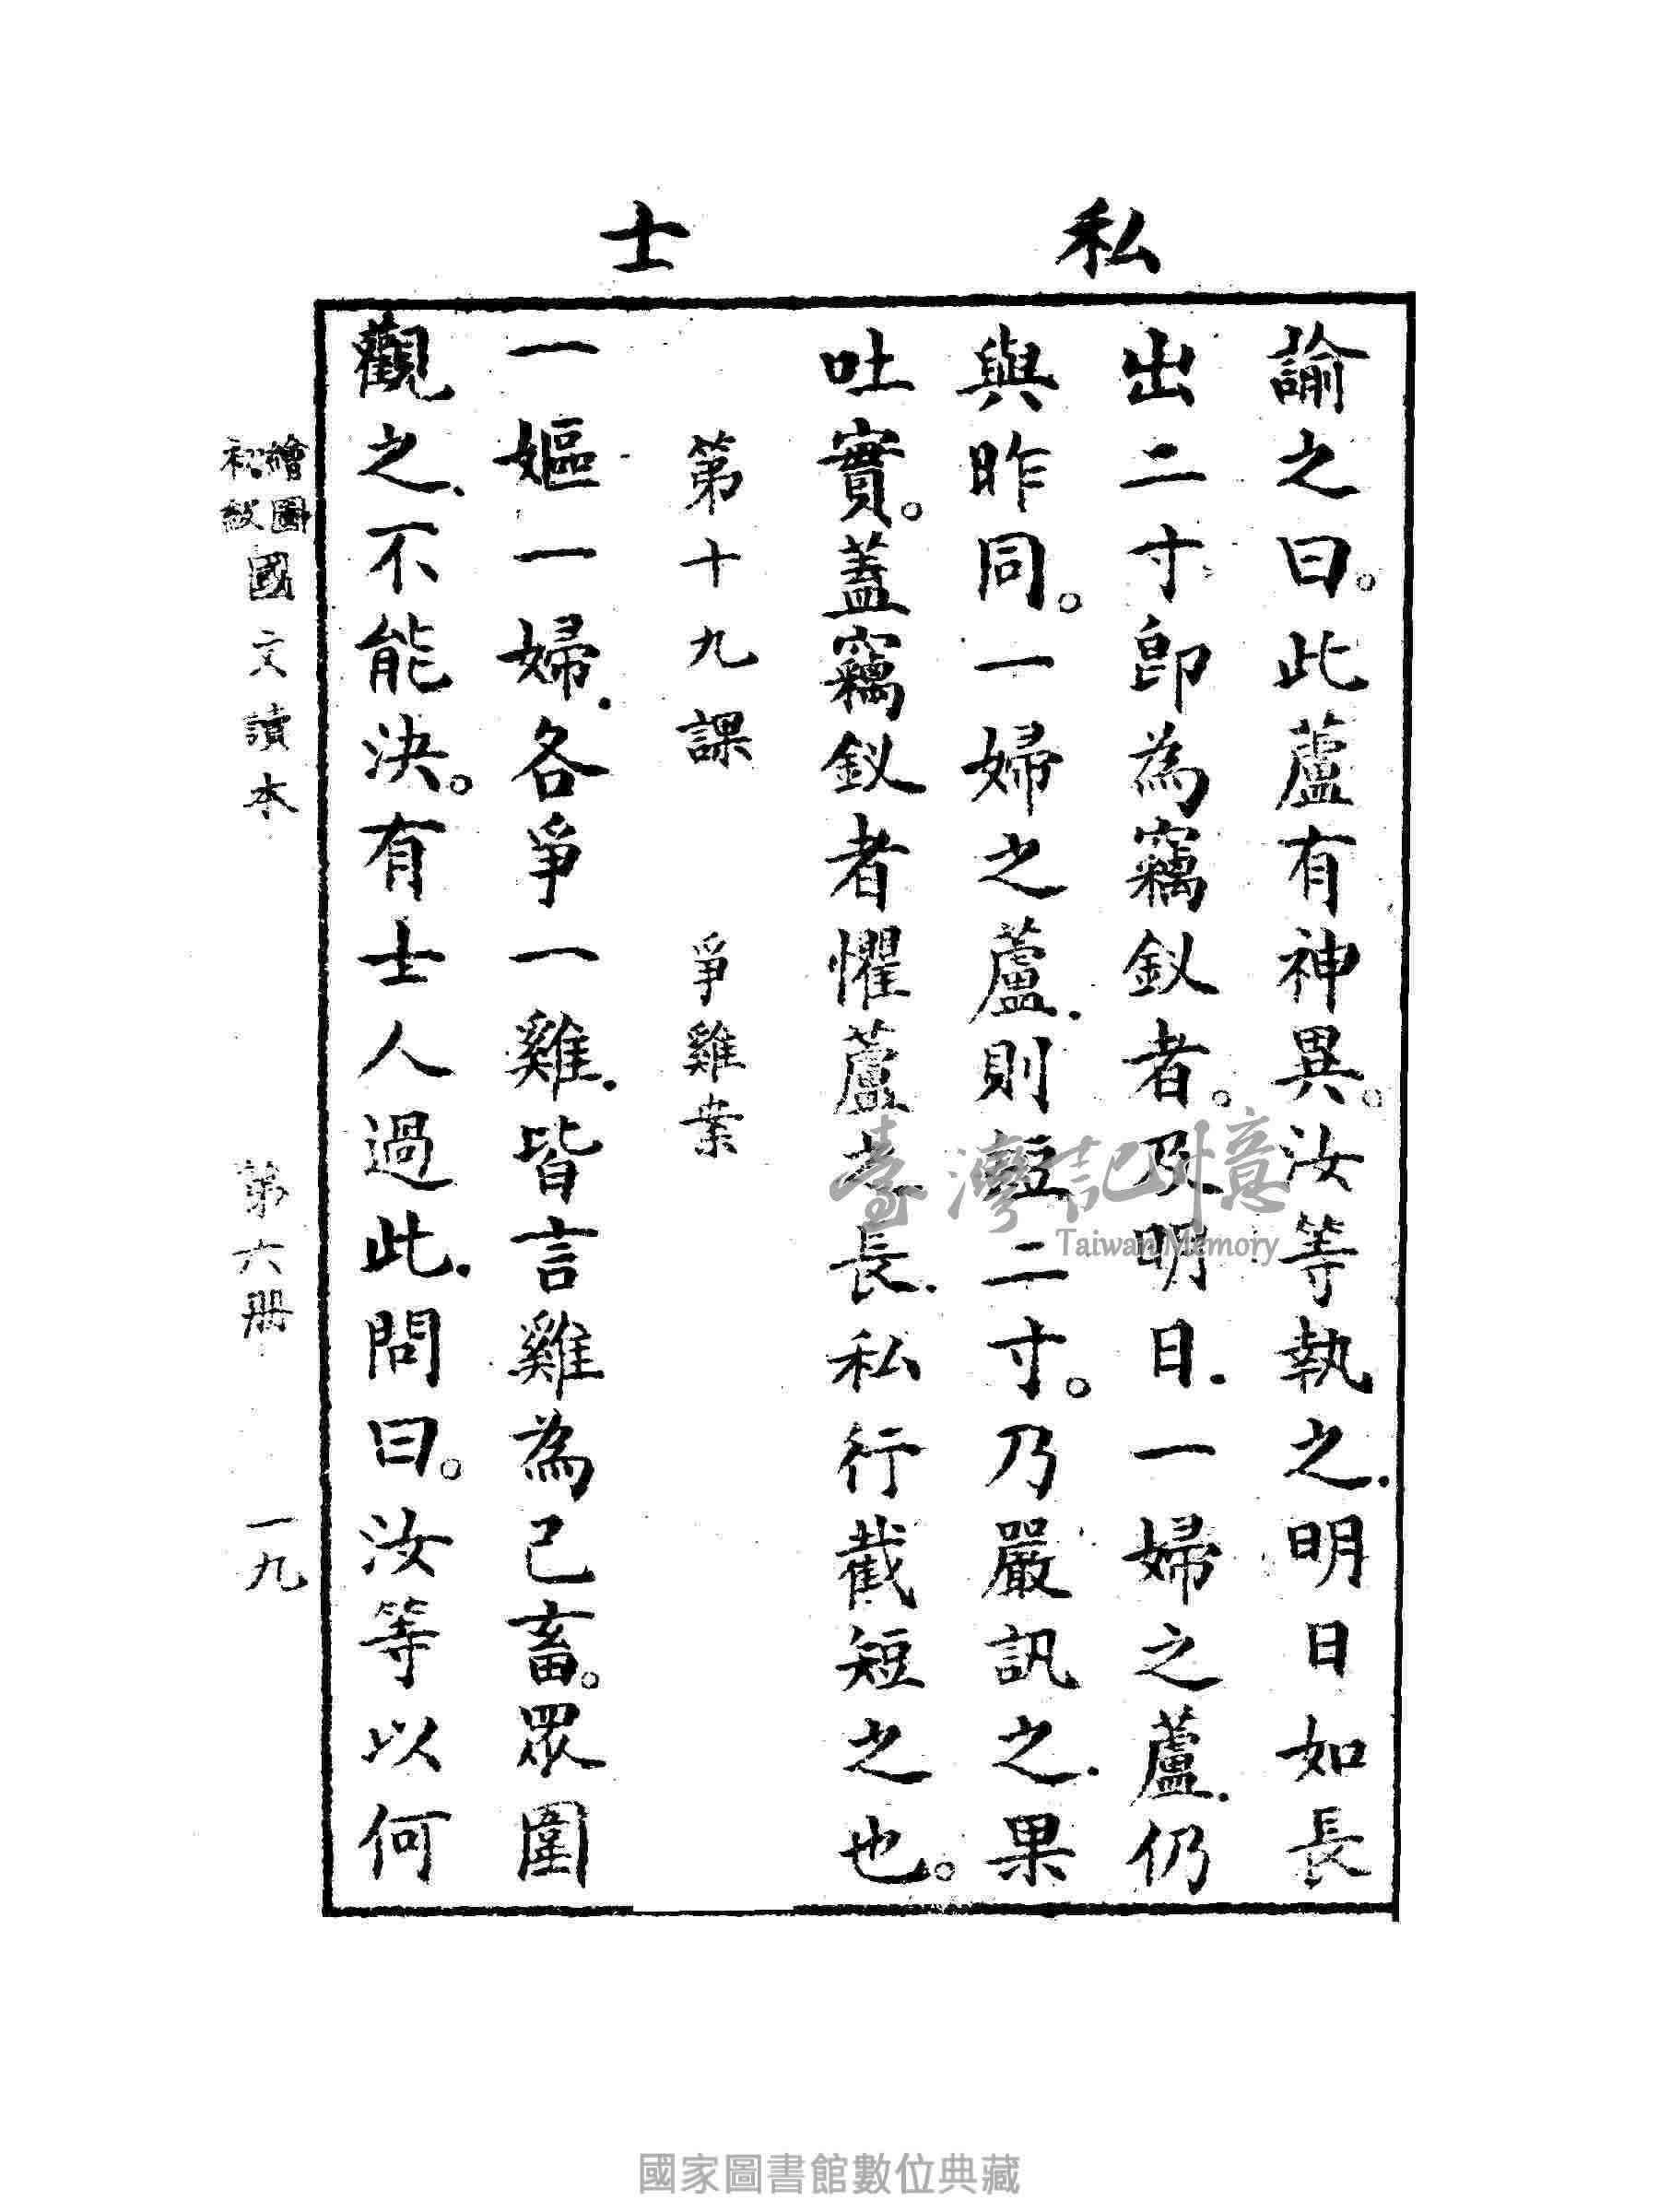 私
士
諭之曰。此蘆有神異。汝等執之.明日如長
出二寸.卽為竊釵者。及明日.一婦之蘆.仍
與昨同。一婦之蘆.則短二寸。乃嚴訊之.果
吐實。蓋竊釵者懼蘆之長.私行截短之也。
第十九課 爭雞案
一嫗一婦.各爭一雞.皆言雞為己畜。眾圍
觀之.不能決。有士人過此.問曰。汝等以何
繪圖初級國文讀本 第六册 一九
臺灣記憶
Taiwan Memory
國家圖書館數位典藏